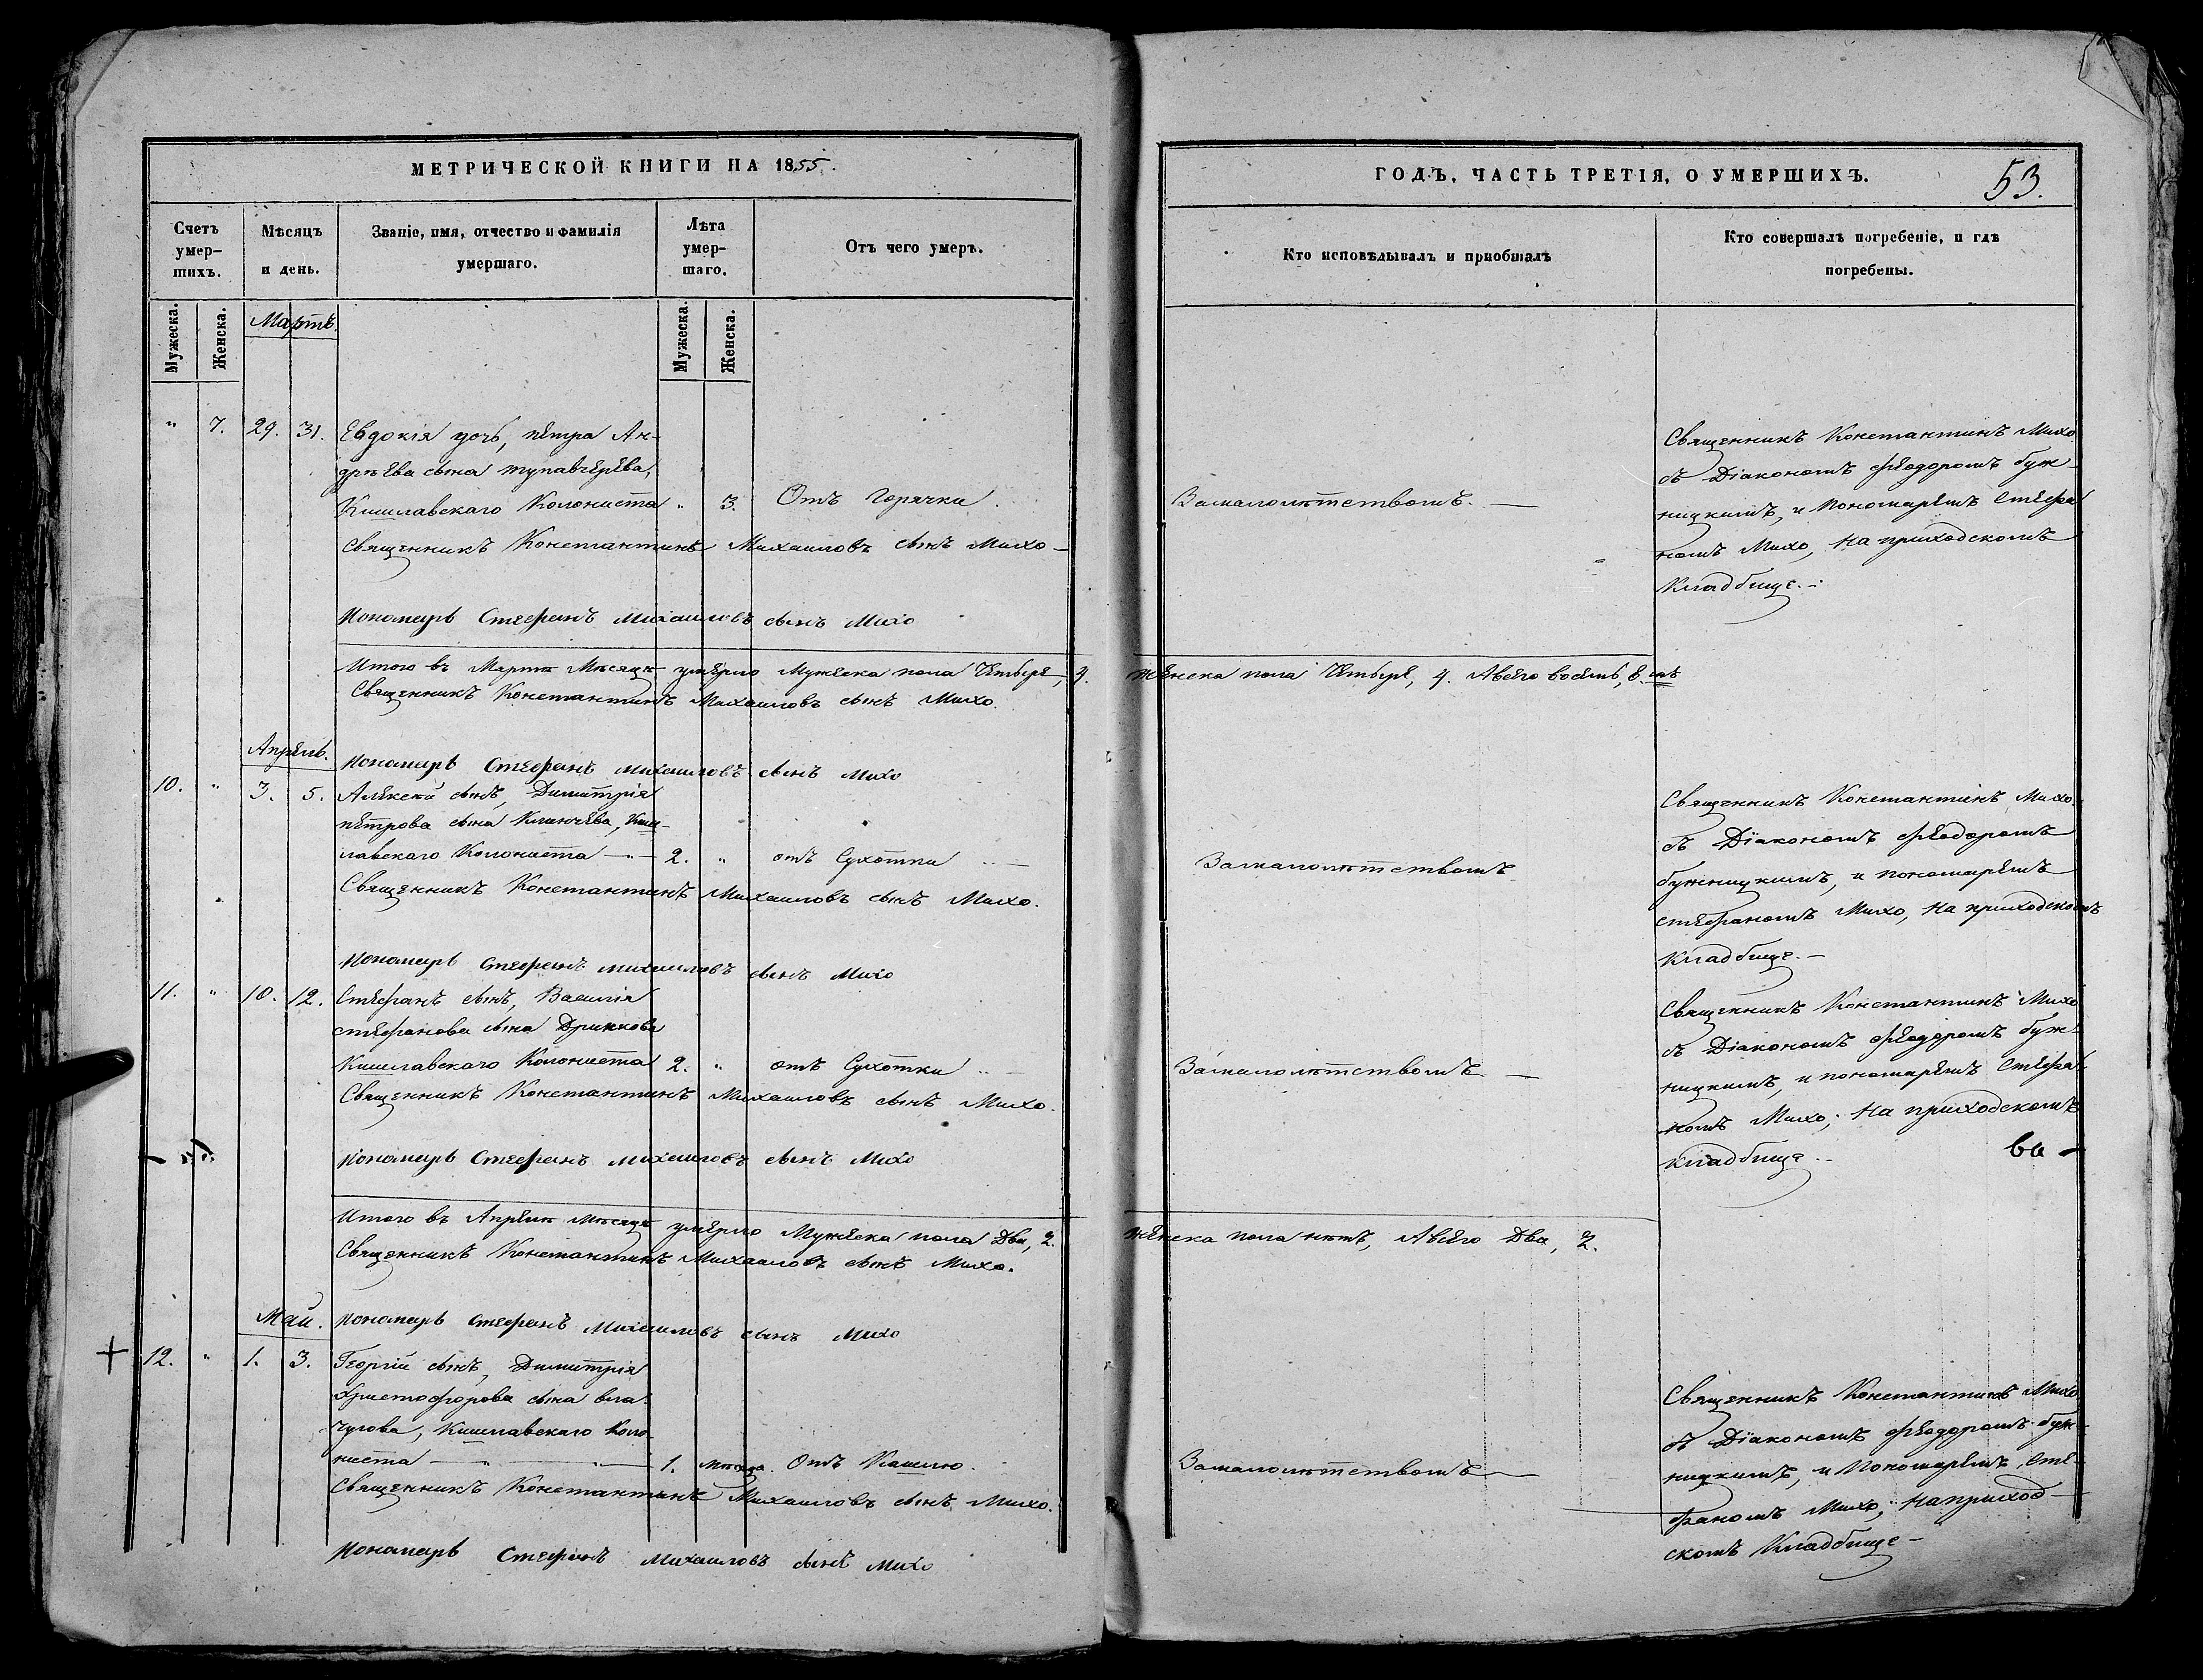 МЕТРИЧЕСКОЙ КНИГИ НА 1855.
Счетъ умер-шихъ.
Мѣсяцъ и день.
Званіе, имя, отчество и фамилія умершаго.
Лѣта умер-шаго.
Отъ чего умеръ.
Мужеска.
Женска.
Мартъ.
Мужеска.
Женска.
" 7. 29. 31. Евдокія дочь, петра Ан-
дрѣева сына тупавчерева,
Кишлавскаго Колониста " 3. Отъ Горячки
священникъ Константинъ Михаиловъ сынъ Михо
Пономарь Стефанъ михаиловъ сынъ Михо
Итого въ Мартѣ Мѣсяцѣ умерло Мужеска пола Четыре, 4.
Священникъ Константинъ Михаиловъ сынъ Михо.
Апрель.
Пономарь Стефанъ михаиловъ сынъ михо
10. " 3. 5. Алексѣй сынъ, Димитрія
петрова сына Клинчева, Киш-
лавскаго Колониста 2. " отъ Сухотки
Священникъ Константинъ Михаиловъ сынъ Михо.
Пономарь стефанъ михаиловъ сынъ Михо
11. " 10. 12. Стефанъ сынъ, Василія
стефанова сына Дринкова
Кишлавскаго Колониста 2. " отъ Сухотки
Священникъ Константинъ Михаиловъ сынъ Михо.
Пономарь Стефанъ михаиловъ сынъ Михо
Итого въ Апрелѣ мѣсяцѣ умерло Мужеска пола Два, 2.
Священникъ Константинъ Михаиловъ сынъ Михо.
Май.
Пономарь Стефанъ Михаиловъ сынъ Михо
12. " 1. 3. Георгій сынъ, Димитрія
Христофорова сына вла-
чугова, Кишлавскаго Коло-
ниста 1. мѣсяца. Отъ Кашлю.
Священникъ Константинъ Михаиловъ сынъ Михо.
Пономарь Стефанъ михаиловъ сынъ михо
ГОДЪ, ЧАСТЬ ТРЕТІЯ, О УМЕРШИХЪ.
53.
Кто исповѣдывалъ и пріобщалъ
Кто совершалъ погребеніе, и гдѣ погребены.
Замалолѣтствомъ.
Священникъ Константинъ Михо
съ Діакономъ Феодоромъ буж-
ницкимъ, и Пономаремъ Стефа
номъ Михо, на приходскомъ
Кладбище.
женска пола Четыре, 4. Авсего восемь, 8.
Замалолѣтствомъ
Священникъ Константинъ Михо.
съ Діакономъ Феодоромъ
бужницкимъ, и пономаремъ
стефаномъ Михо, на приходскомъ
кладбище.
Замалолѣтствомъ
Священникъ Константинъ Михо
съ Діакономъ Феодоромъ буж-
ницкимъ, и пономаремъ Стефа-
номъ Михо; на приходскомъ
кладбище.
ва -
женска пола нѣтъ, Авсего Два, 2.
Замалолѣтствомъ
Священникъ Константинъ Михо
съ Діакономъ Феодоромъ буж-
ницкимъ, и Пономаремъ, Сте-
фаномъ Михо, наприход-
скомъ Кладбище